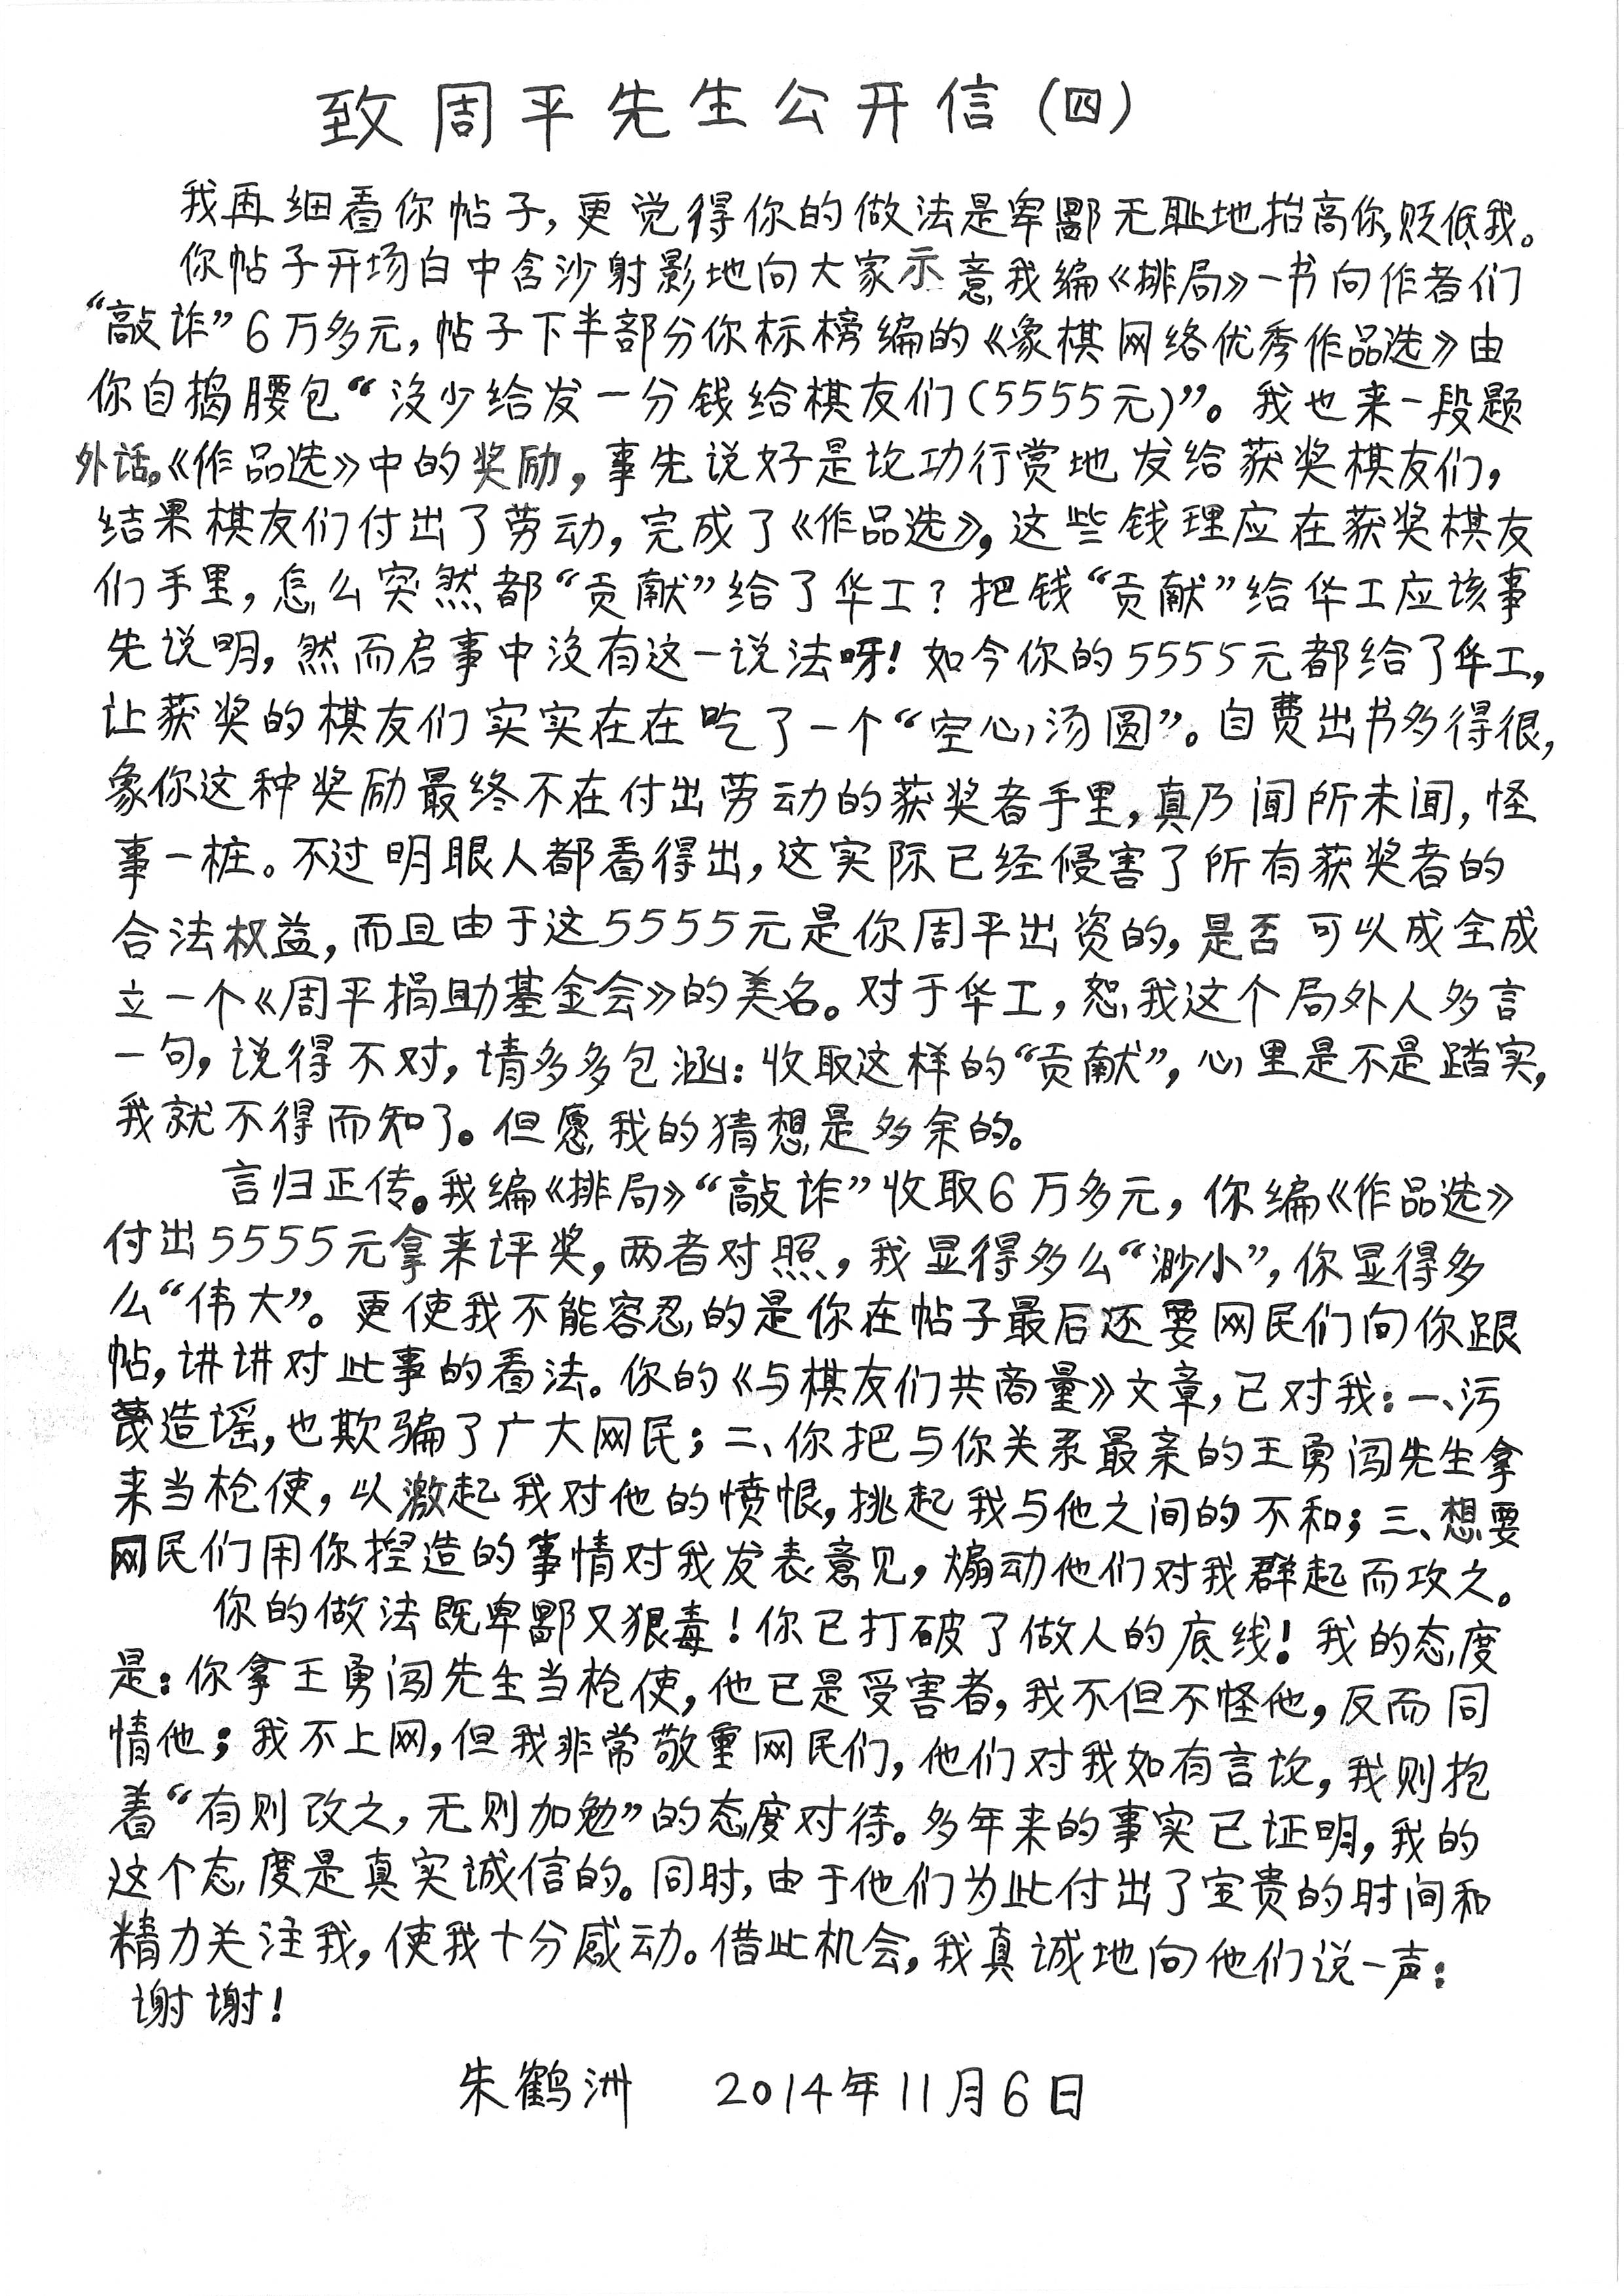 致周平先生公开信(四)
我再细看你帖子,更觉得你的做法是卑鄙无耻地抬高你,贬低我。
你帖子开场白中含沙射影地向大家示意我编《排局》一书向作者们
“敲诈”6万多元,帖子下半部分你标榜编的《象棋网络优秀作品选》由
你自掏腰包“没少给发一分钱给棋友们(5555元)”。我也来一段题
外话。《作品选》中的奖励,事先说好是论功行赏地发给获奖棋友们,
结果棋友们付出了劳动,完成了《作品选》,这些钱理应在获奖棋友
们手里,怎么突然都“贡献”给了华工?把钱“贡献”给华工应该事
先说明,然而启事中没有这一说法呀!如今你的5555元都给了华工,
让获奖的棋友们实实在在吃了一个“空心汤圆”。自费出书多得很,
象你这种奖励最终不在付出劳动的获奖者手里,真乃闻所未闻,怪
事一桩。不过明眼人都看得出,这实际已经侵害了所有获奖者的
合法权益,而且由于这5555元是你周平出资的,是否可以成全成
立一个《周平捐助基金会》的美名。对于华工,恕我这个局外人多言
一句,说得不对,请多多包涵:收取这样的“贡献”,心里是不是踏实,
我就不得而知了。但愿我的猜想是多余的。
言归正传。我编《排局》“敲诈”收取6万多元,你编《作品选》
付出5555元拿来评奖,两者对照,我显得多么“渺小”,你显得多
么“伟大”。更使我不能容忍的是你在帖子最后还要网民们向你跟
帖,讲讲对此事的看法。你的《与棋友们共商量》文章,已对我:一、污
蔑造谣,也欺骗了广大网民;二、你把与你关系最亲的王勇闯先生拿
来当枪使,以激起我对他的愤恨,挑起我与他之间的不和;三、想要
网民们用你捏造的事情对我发表意见,煽动他们对我群起而攻之。
你的做法既卑鄙又狠毒!你已打破了做人的底线!我的态度
是:你拿王勇闯先生当枪使,他已是受害者,我不但不怪他,反而同
情他;我不上网,但我非常敬重网民们,他们对我如有言论,我则抱
着“有则改之,无则加勉”的态度对待。多年来的事实已证明,我的
这个态度是真实诚信的。同时,由于他们为此付出了宝贵的时间和
精力关注我,使我十分感动。借此机会,我真诚地向他们说一声:
谢谢!
朱鹤洲 2014年11月6日